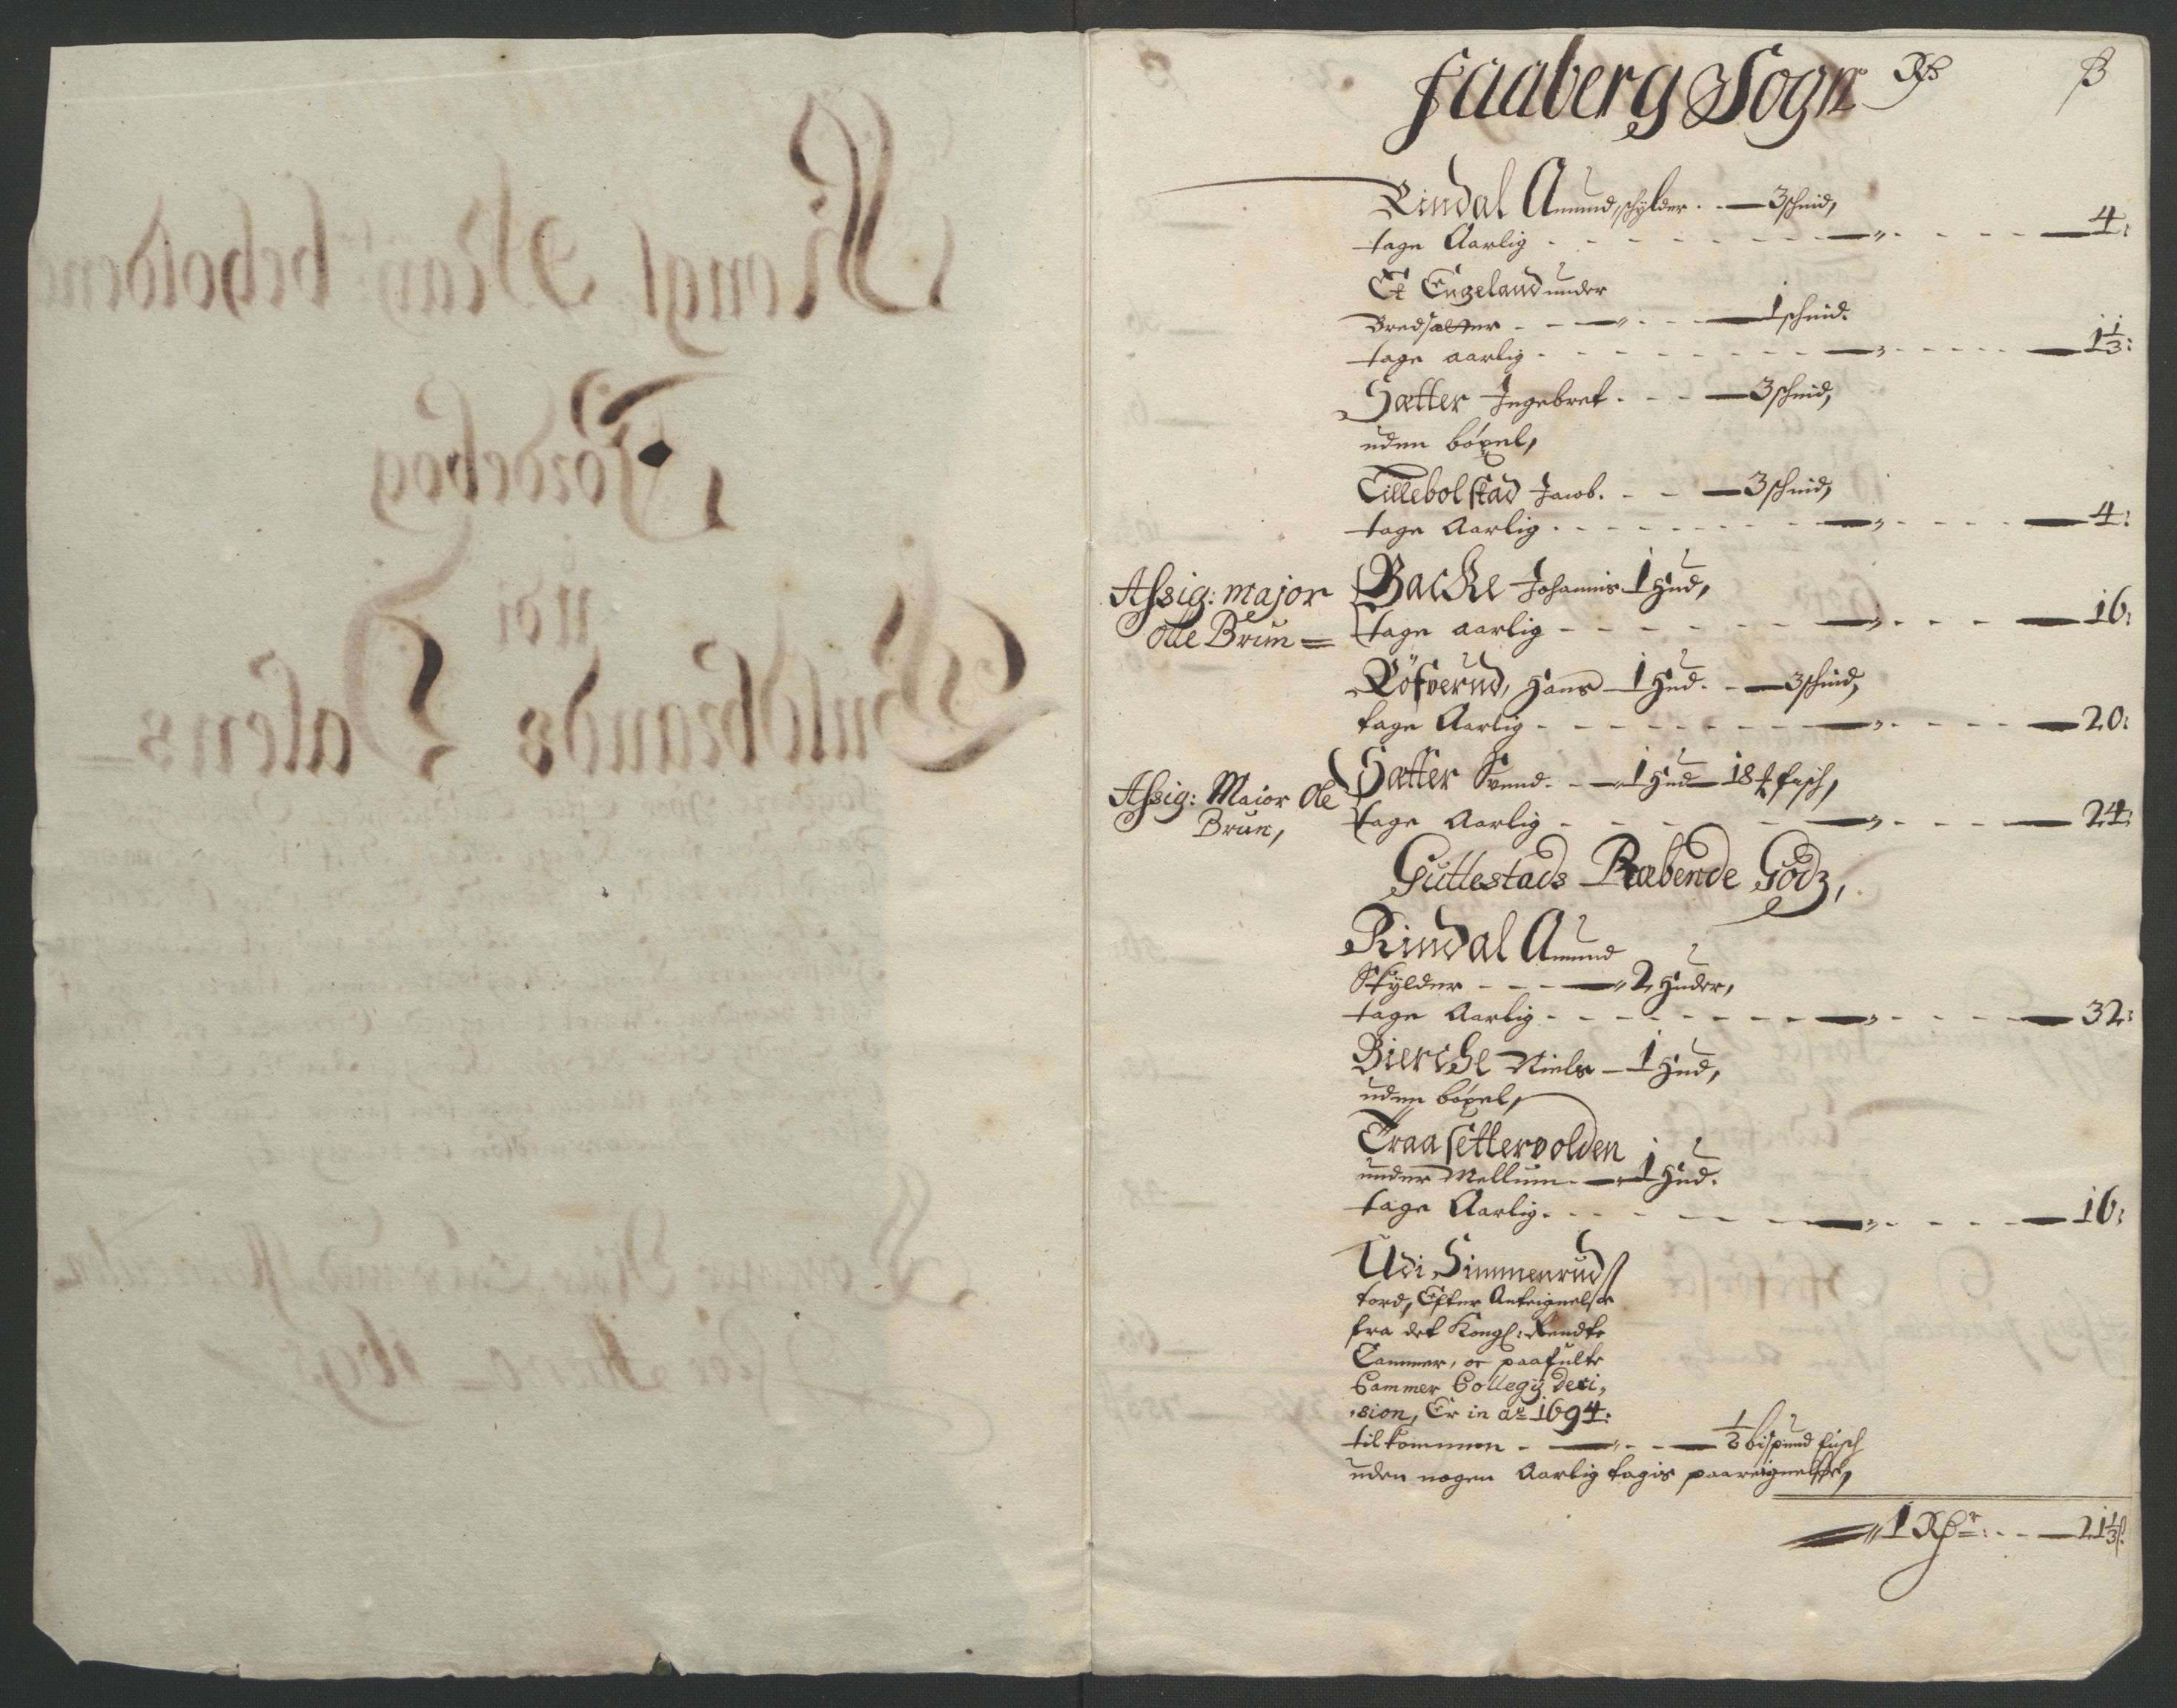 Faaberg Sogn Rß ß
Rindal Amund, schylder - 3 schind,
tage Aarlig - 4:
Et Engeland under
Bredsætter - 1 schind.
tage aarlig - 1 1/3:
Sætter Ingebret - 3 schind,
uden böxel,
Tillebolstad Jacob. - 3 schind,
tage Aarlig - 4:
Assig: major Backe Johannis 1 Hud,
Olle Brun = tage aarlig - 16:
Löfverud, Hans 1 Hud. - 3 schind,
tage Aarlig - 20:
Assig: Maior Ole Sætter Svend - 1 Hud 18 fisch,
Brun, tage Aarlig - 24:
Gullestads Præbende Godz,
Rindal Amund
Skylder - 2 Huder,
tage Aarlig - 32:
Bierche Niels - 1 Hud,
uden böxel,
Traasettervolden
under Mellum - 1 Hud.
tage Aarlig - 16:
Udi Simmenrud
ford, Efter Anteignelse
fra det Kongl: Rendte
Cammer, oc paafulte
Cammer Collegij Deci,
,sion, Er in ao 1694:
tilkommen - 1/2 bispund fisch
uden nogen Aarlig tagis paareignelse,
1 Rßr: - 21 1/3 ß